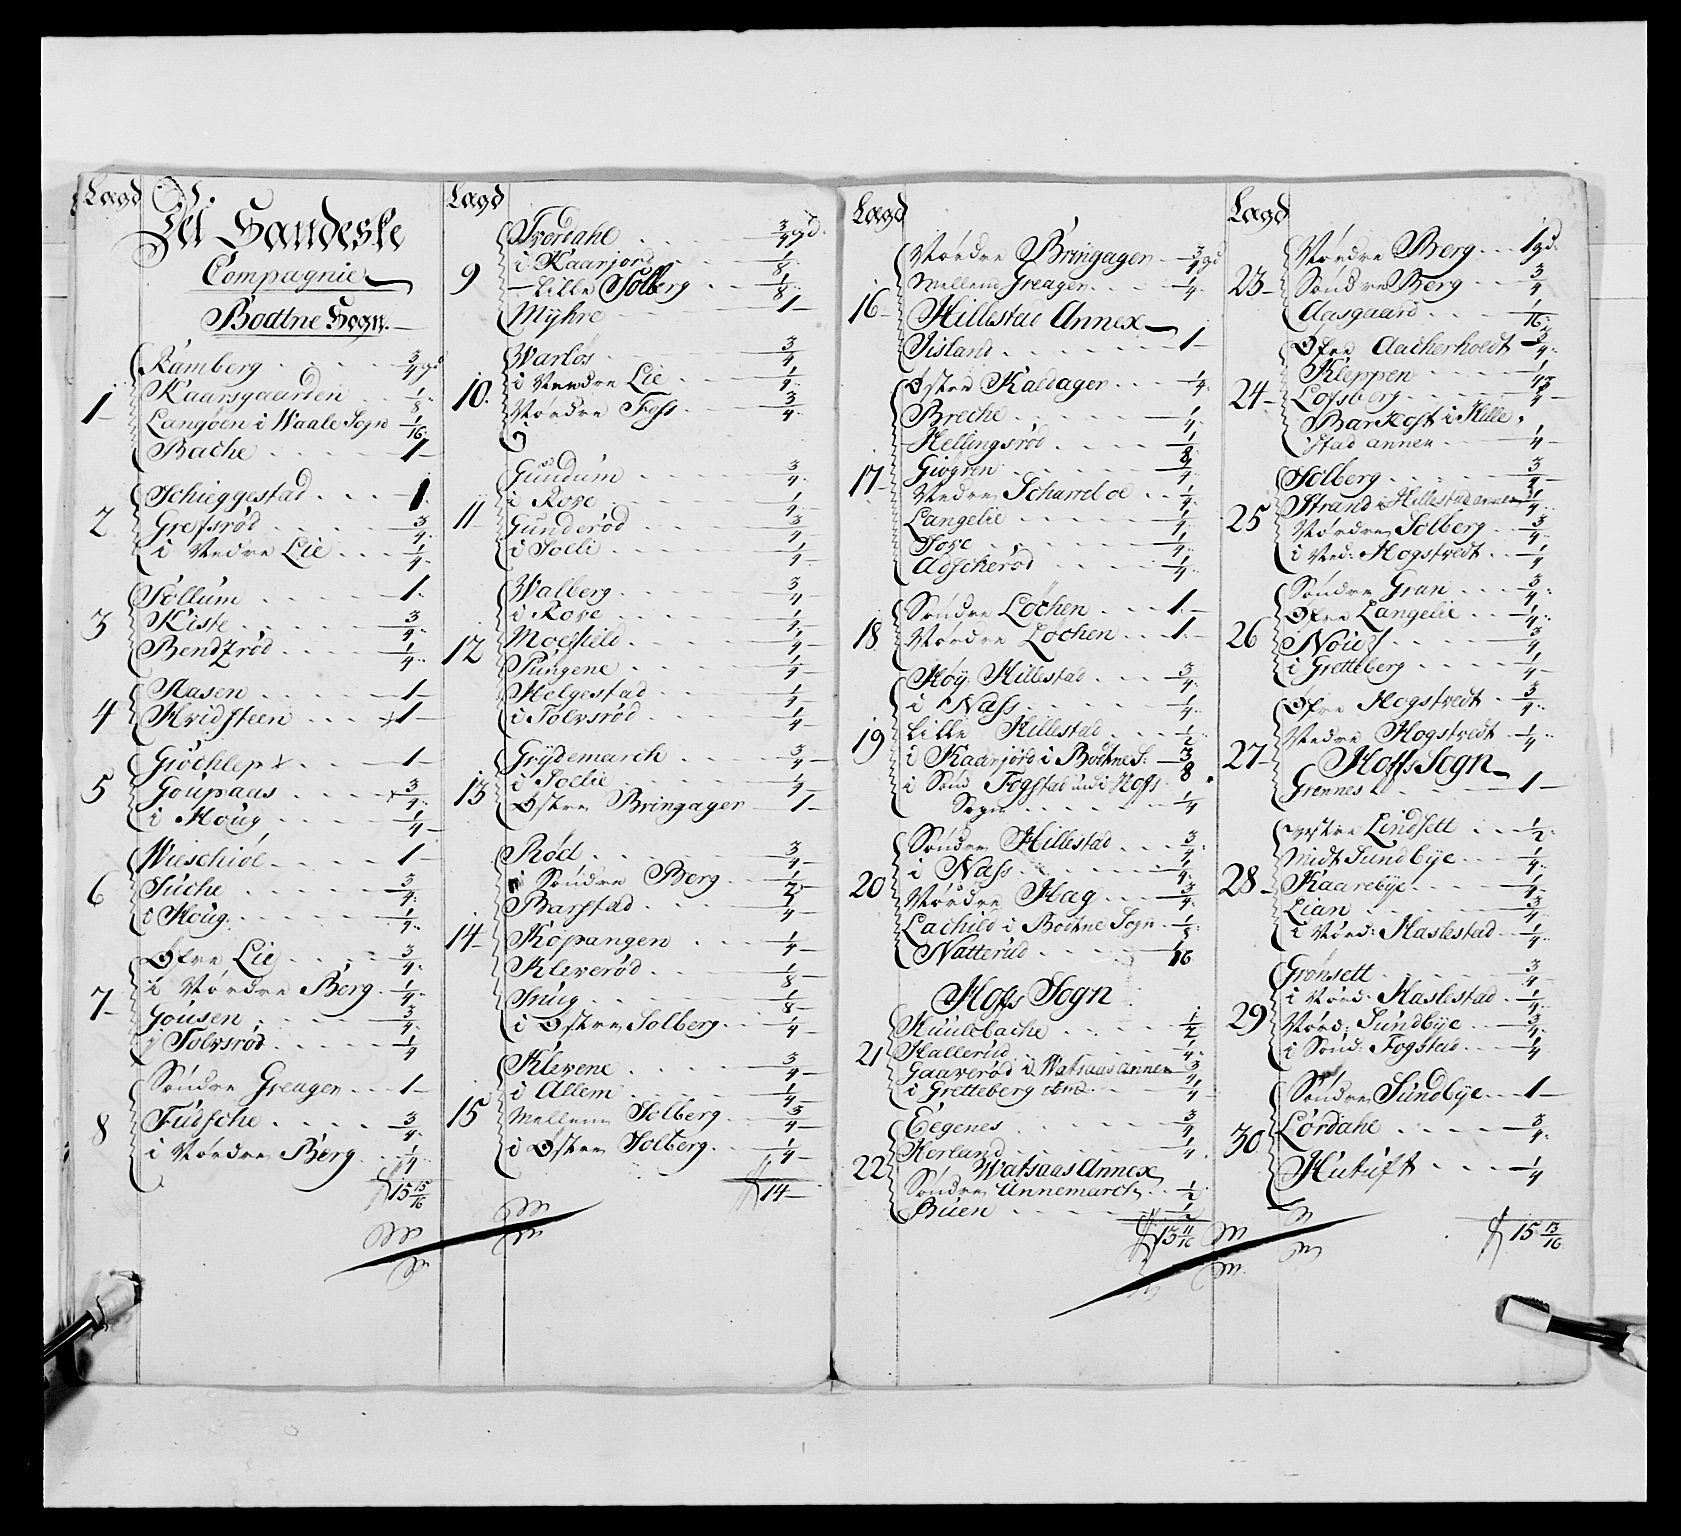 Lægd
Det Sandeske
Compagnie
Bodtne Sogn.
Ramberg . . . . 3/4 gd
1 Kaarsgaarden . . 1/8
Langøen i Waale Sogn 1/16
Bache . . . . 1
Schieggestad . . . 1
2 Grefsrød . . . . 3/4
i Nedre Lie . . . 1/4
Sollum . . . . 1
3 Kiste . . . . 3/4
Bendzrød . . . . 1/4
Aasen . . . . 1
4 Hvidsteen . . . 1
Grøchlep . . . 1
5 Goupaas . . . 3/4
i Houg . . . . 1/4
Wieschiøl . . . . 1
6 Suche . . . . 3/4
i Houg . . . . 1/4
Øfre Lie . . . 3/4
i Nørdre Berg . 1/4
7 Gousen . . . . 3/4
i Tolvsrød . . . . 1/4
Søndre Greager . . 1
8 Fudsche . . . . 3/4
i Nørdre Berg . . 1/4
15 15/16
Lægd
Tverdahl . . . . 3/4 gd.
9 i Kaarjord . . . 1/8
Lille Solberg . . 1/8
Myhre . . . . 1
Warlos . . . . 3/4
10. i Nerdre Lie . . . 1/4
Nørdre Foss . . . 3/4
Gundum . . . . 3/4
i Rove . . . . 1/4
11 Gunderød . . . . 3/4
i Solli . . . . 1/4
Walberg . . . . 3/4
i Rove . . . . 1/4
12 Moeffield . . . . 1/4
Pungene . . . . 1/4
Helgestad . . . . 1/4
i Tolvsrød . . . . 1/4
Grydemarch . . . 3/4
13 i Sollie . . . . 1/4
Østre Bringager 1
Rød . . . . 3/4
i Søndre Berg . . 1/2
Barstad . . . . 1/4
14 Kopangen . . . 1/4
Kleverød . . . . 1/8
Snug . . . . 1/8
i Østre Solberg . . 1/4
Klevene . . . . 3/4
i Allem . . . . 1/4
15 Mellem Solberg . . 3/4
i Østre Solberg . . 1/4
14
Lægd
Nørdre Bringager 3/4 gd
Mellem Greager . . . 1/4
16 Hillestad Annex
Island . . . . 1
Østre Kaldager . . . 1/4
Breche . . . . 1/4
Hellingsrød . . . 1/8
Giogren . . . . 1/4
17 Nedre Scharrel oe . . 1/4
Langelie . . . . 1/4
Fore . . . . 1/4
Adscherød . . . . 1/4
Søndre Lochen . . . 1
18 Nørdre Lochen . . . 1
Høy Hillestad . . . 3/4
i Nass . . . . 1/4
19 Lille Hillestad . . . 1/2
i Kaarjord i Bodtne S: 3/8
i Sønd. Fogstad udi Hofs
Sogn . . . . 1/4
Søndre Hillestad . . . 3/4
i Nass . . . . 1/4
20 Nørdre Hag . . . 3/4
Lachild i Bodtne Sogn . 1/8
Natterud . . . . 1/16
Hofs Sogn
Kuulebache . . . 1/2
21 Hallerud . . . . 1/4
Gaaverød i Watsaas Annex 3/4
i Gretteberg . . . 1/4
Eegenes . . . . 3/4
Horland . . . . 1/4
22 Watsaas Annex
Søndre Annemarch . . 1/2
Buen . . . . 1/2
13 11/16
Lægd
Nørdre Berg . . . 1 gd.
23 Søndre Berg . . . 3/4
Aasgaard . . . . 1/16
Øfre Aacherholdt 3/4
Kleppen . . . . 1/4
24 Lofsberg . . . . 3/4
Barkost i Hille,
stad annex . . . 1/4
Solberg . . . . 3/4
Strand i Hillestad annex 1/4
25 Nørdre Solberg . . 3/4
i Ned: Hogstvedt . . 1/4
Søndre Gran . . . 3/4
Øfre Langelie . . . 1/4
26 Nøies . . . . 3/4
i Gretteberg . . . . 1/4
Øfre Hogstvedt . . 3/4
Nedre Hogstvedt . . 1/4
27 Hofs Sogn
Grennes . . . . 1
vestre Lindsett . . 1/2
Midt Sundbye . . . 1/4
28 Kaarebye . . . 1/4
Lian . . . . 3/4
i Nørd: Haslestad . . 1/4
Grønsett . . . . 3/4
i Nørd: Haslestad . . 1/4
29 Nørd: Sundbye . . . 3/4
i Sønd: Fogstad . . . 1/4
Søndre Sundbye . . . 1
30 Lørdahl . . . . 3/4
Hutuft . . . 1/4
15 13/16